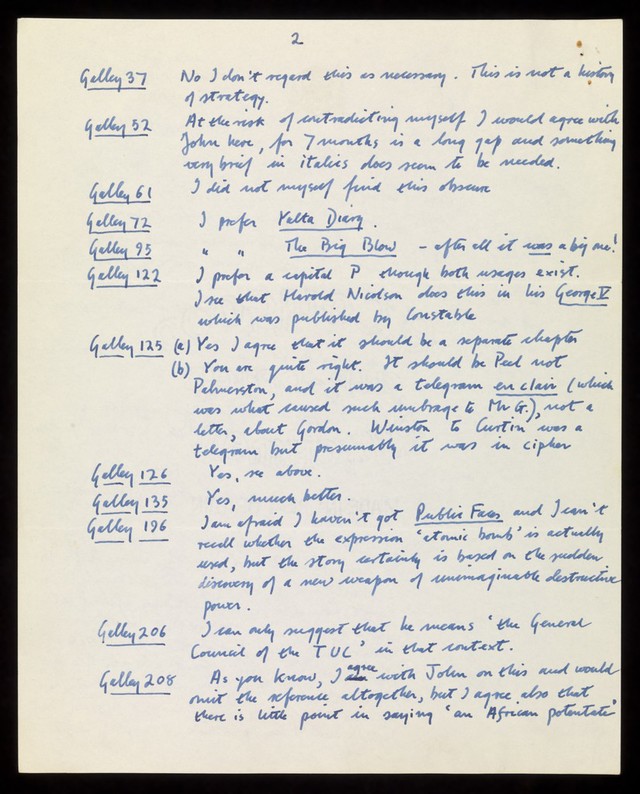 2
Galley 37 No I don't regard this as necessary. This is not a history
of strategy.
Galley 52 At the risk of contradicting myself I would agree with
John here, for 7 months is a long gap and something
very brief in italics does seem to be needed.
Galley 61 I did not myself find this obscure
Galley 72 I prefer Yalta Diary.
Galley 95 " " The Big Blow - after all it was a big one!
Galley 122 I prefer a capital P though both usages exist.
I see that Harold Nicolson does this in his George V
which was published by Constable
Galley 125 (a) Yes I agree that it should be a separate chapter
(b) You are quite right. It should be Peel not
Palmerston, and it was a telegram en clair (which
was what caused such umbrage to Mr G.), not a
letter, about Gordon. Winston to Curtin was a
telegram but presumably it was in cipher
Galley 126 Yes, see above.
Galley 135 Yes, much better.
Galley 196 I am afraid I haven't got Public Faces and I can't
recall whether the expression 'atomic bomb' is actually
used, but the story certainly is based on the sudden
discovery of a new weapon of unimaginable destructive
power.
Galley 206 I can only suggest that he means 'the General
Council of the TUC' in that context.
Galley 208 As you know, I agree with John on this and would
omit the reference altogether, but I agree also that
there is little point in saying 'an African potentate'